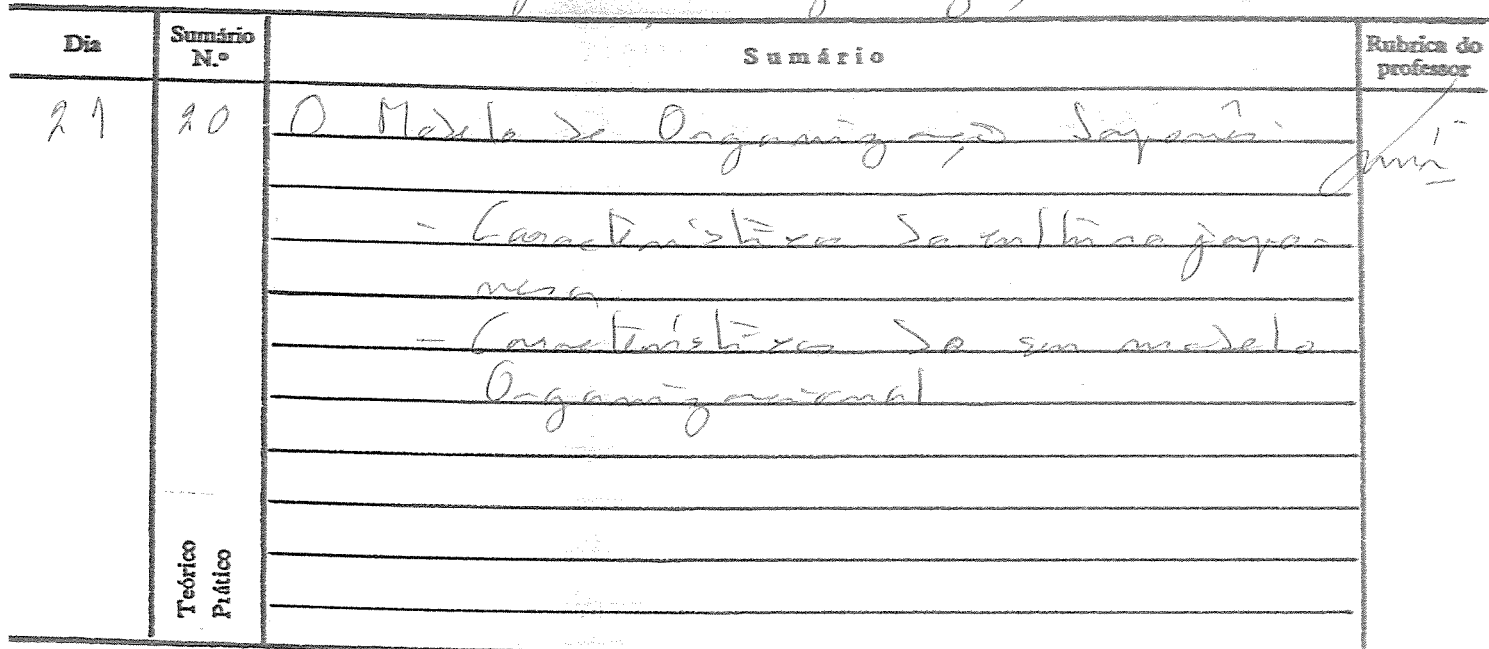 Dia Sumário N.º Sumário Rubrica do professor
21 20 O Modelo de Organização Japonês.
- Características da cultura japo-
nesa
- Características do seu modelo
Organizacional
Teórico
Prático